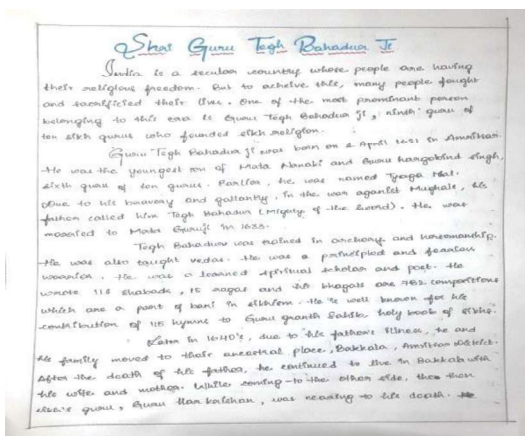 Shri Guru Tegh Bahadur Ji
India is a secular country whose people are having
their religious freedom. But to acheive this, many people fought
and sacrificied their lives. One of the most prominant person
belonging to this era is Guru Tegh Bahadur ji, ninth guru of
ten sikh gurus who founded sikh religion.
Guru Tegh Bahadur ji was born on 2 April 1621 in Amritsar.
He was the youngest son of Mata Nanaki and Guru hargobind singh,
sixth guru of ten gurus. Earlier, he was named Tyaga Mal.
Due to his bravery and gallantry, in the war against Mughals, his
father called him Tegh Bahadur (Mighty of the Sword). He was
married to Mata Gujri in 1633.
Tegh Bahadur was trained in archery and horsemanship.
He was also taught vedas. He was a principled and fearless
warrior. He was a learned spiritual scholar and poet. He
wrote 116 shabads, 15 ragas and his bhagats are 782 compositions
which are a part of bani in sikhism. He is well known for his
contribution of 115 hymns to Guru granth Sahib, holy book of sikhs.
Later in 1640's, due to his father's illness, he and
his family moved to their ancestral place, Bakkala, Amritsar District.
After the death of his father, he continued to live in Bakkala with
his wife and mother. While coming to the other side, the then
guru, Guru Har krishan, was nearing to his death.